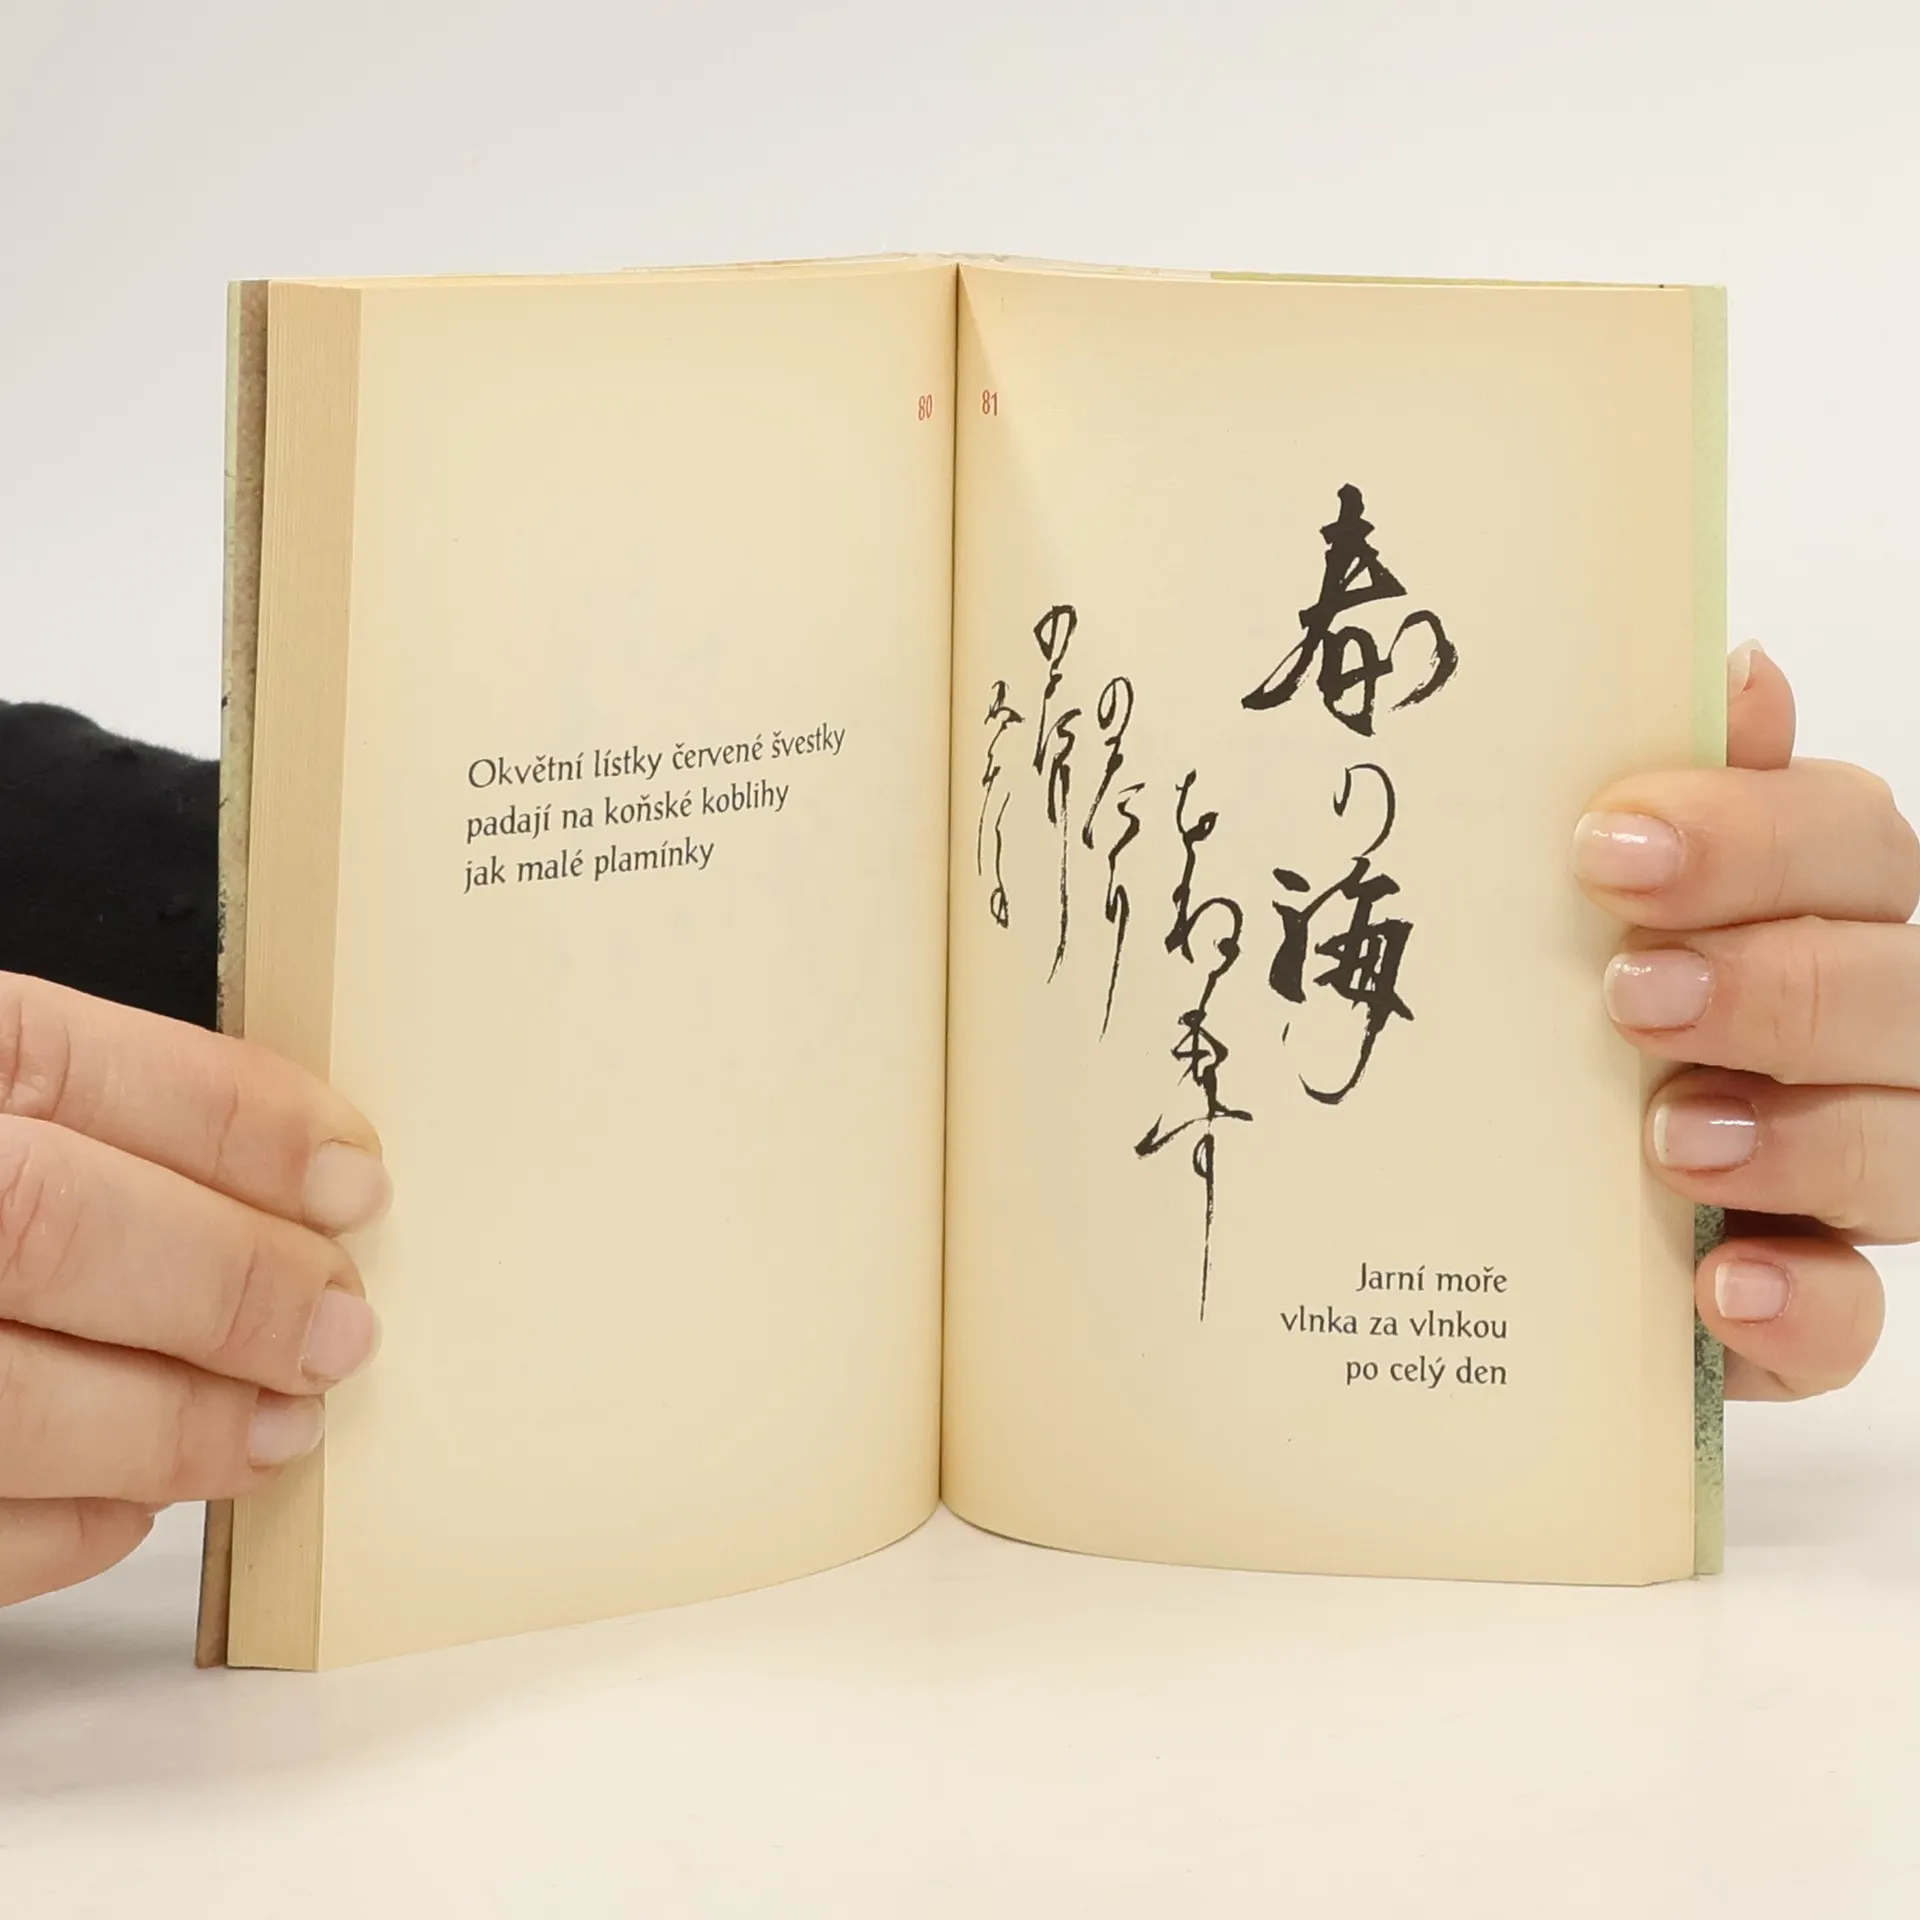 80
Okvětní lístky červené švestky
padají na koňské koblihy
jak malé plamínky
81
春の海
ひねもす
のたり
のたり
Jarní moře
vlnka za vlnkou
po celý den